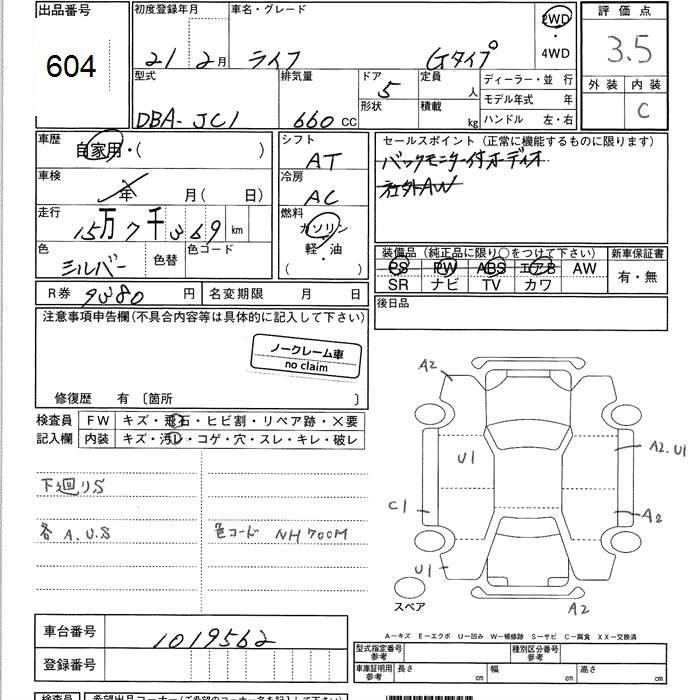 出品番号
604
初度登録年月
21 2月
車名・グレード
ライフ Gタイプ
2WD
・
4WD
評価点
3.5
外装 内装
C
型式
DBA-JC1
排気量
660 CC
ドア 5
形状
定員 人
積載 kg
ディーラー・並 行
モデル年式 年
ハンドル 左・右
車歴
自家用・( )
車検
年 月( 日)
走行
15万7千369 km
色
シルバー
色替
色コード
シフト
AT
冷房
AC
燃料
ガソリン
軽・油
( )
セールスポイント (正常に機能するものに限ります)
バックモニター付オーディオ
社外AW
装備品 (純正品に限り○をつけて下さい)
PS PW ABS エアB AW
SR ナビ TV カワ
新車保証書
有・無
R券 9380 円
名変期限 月 日
後日品
注意事項申告欄(不具合内容等は具体的に記入して下さい)
ノークレーム車
no claim
修復歴 有 〔箇所 〕
検査員
記入欄
FW キズ・飛石・ヒビ割・リペア跡・×要
内装 キズ・汚レ・コゲ・穴・スレ・キレ・破レ
下廻りS
各 A.U.S
色コード NH700M
A2
U1
A2.U1
C1
A2
U1
A2
スペア
車台番号
1019562
登録番号
A-キズ E-エクボ U-凹み W-補修跡 S-サビ C-腐食 XX-交換済
型式指定番号
参考
種別区分番号
参考
車庫証明用
参考
長さ cm
幅 cm
高さ cm
検査員
希望出品コーナー(ご希望のコーナー名を記入下さい)